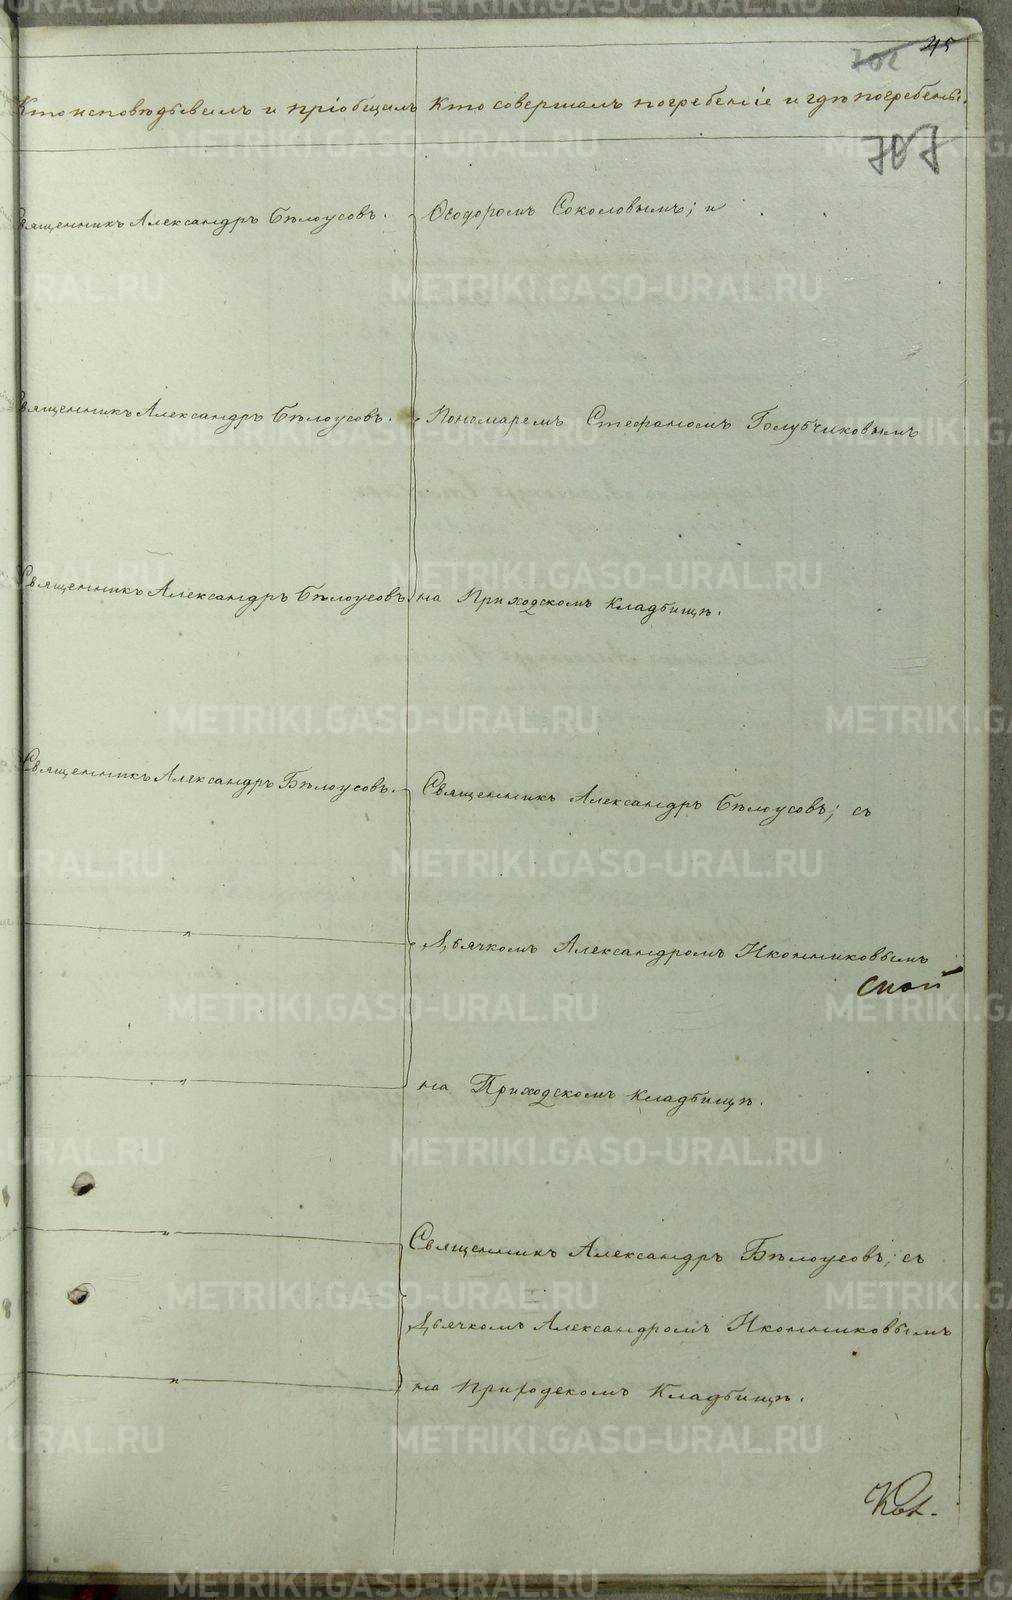 45
702
Кто исповѣдывалъ и пріобщалъ
Кто совершалъ погребеніе и гдѣ погребены.
707
Священникъ Александръ Бѣлоусовъ.
Ѳеодоромъ Соколовымъ; и
Священникъ Александръ Бѣлоусовъ.
Пономаремъ Стефаномъ Голубчиковымъ
Священникъ Александръ Бѣлоусовъ
на Приходскомъ Кладбищѣ.
Священникъ Александръ Бѣлоусовъ.
Священникъ Александръ Бѣлоусовъ; съ
"
Дьячкомъ Александромъ Иконниковымъ
"
на Приходскомъ Кладбищѣ.
"
Священникъ Александръ Бѣлоусовъ; съ
Дьячкомъ Александромъ Иконниковымъ
"
на Приходскомъ Кладбищѣ.
METRIKI.GASO-URAL.RU